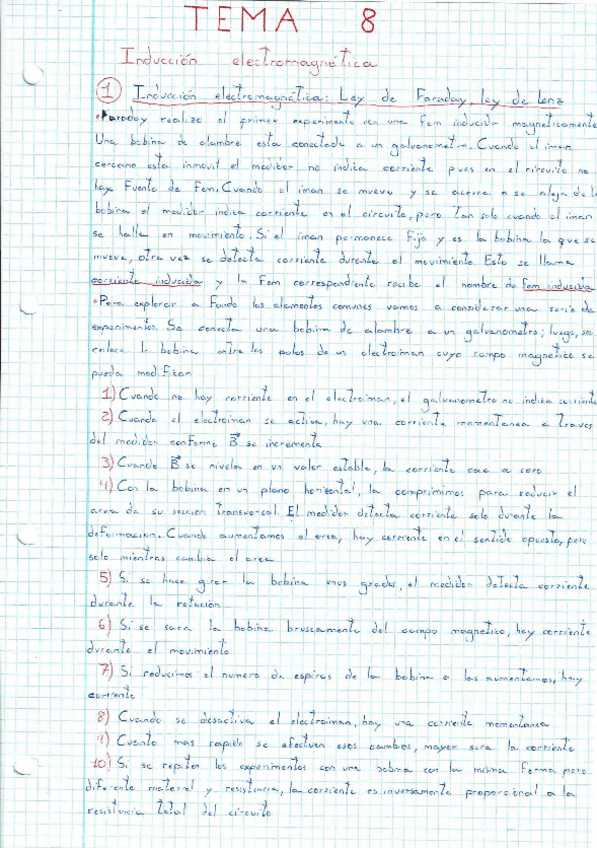 TEMA 8
Inducción electromagnética
1 Inducción electromagnética: Ley de Faraday, ley de Lenz
• Faraday realizo el primer experimento con una fem inducida magneticamente
Una bobina de alambre esta conectada a un galvanometro. Cuando el iman
cercano esta inmovil el medidor no indica corriente pues en el circuito no
hay Fuente de Fem. Cuando el iman se mueve y se acerca o se aleja de la
bobina el medidor indica corriente en el circuito, pero Tan solo cuando el iman
se halla en movimiento. Si el iman permanece Fijo y es la bobina la que se
mueve, otra vez se detecta corriente durante el movimiento. Esto se llama
corriente inducida y la Fem correspondiente recibe el nombre de fem inducida
• Para explorar a Fondo los elementos comunes vamos a considerar una serie de
experimentos. Se conecta una bobina de alambre a un galvanometro; luego, se
coloca la bobina entre los polos de un electroiman cuyo campo magnetico se
pueda modificar
1) Cuando no hay corriente en el electroiman, el galvanometro no indica corriente
2) Cuando el electroiman se activa, hay una corriente momentanea a traves
del medidor conforme B⃗ se incrementa
3) Cuando B⃗ se nivela en un valor estable, la corriente cae a cero
4) Con la bobina en un plano horizontal, la comprimimos para reducir el
area de su seccion transversal. El medidor detecta corriente solo durante la
deformacion. Cuando aumentamos el area, hay corriente en el sentido opuesto, pero
solo mientras cambia el area
5) Si se hace girar la bobina unos grados, el medidor detecta corriente
durante la rotacion
6) Si se saca la bobina bruscamente del campo magnetico, hay corriente
durante el movimiento
7) Si reducimos el numero de espiras de la bobina o las aumentamos, hay
corriente
8) Cuando se desactiva el electroiman, hay una corriente momentanea
9) Cuanto mas rapido se efectuen esos cambios, mayor sera la corriente
10) Si se repiten los experimentos con una bobina con la misma Forma pero
diferente material y resistencia, la corriente es inversamente proporcional a la
resistencia total del circuito